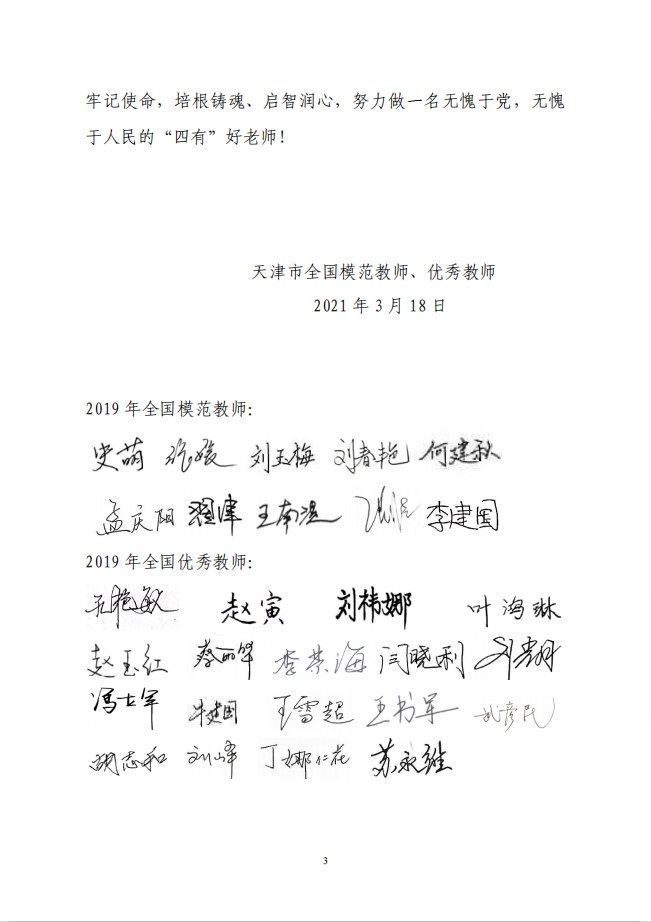 牢记使命，培根铸魂、启智润心，努力做一名无愧于党，无愧
于人民的“四有”好老师！
天津市全国模范教师、优秀教师
2021 年 3 月 18 日
2019 年全国模范教师：
史萌 刘玉梅 刘春艳 何建秋
孟庆阳 李建国
2019 年全国优秀教师：
赵寅 刘祎娜 叶海琳
赵玉红 蔡丽华 李荣海 闫晓利
冯士军 牛建国 王雪超 王书军
胡志和 刘峰 丁娜仁花 苏永继
3